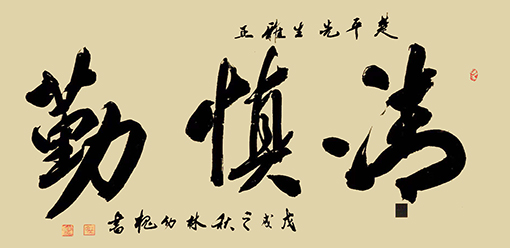 楚平先生雅正
清慎勤
戊戌之秋林幼槐書